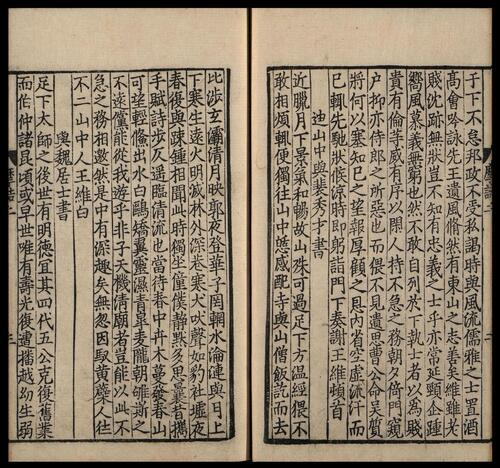 于下不怠邦政不受私謁時與風流儒雅之士置酒
高會吟詠先王遺風翛然有東山之志善矣維雖老
賤沈跡無狀豈不知有忠義之士乎亦常延頸企踵
嚮風慕義無窮也然不敢自列於下執士者以爲賤
貴有倫等威有序以閑人持不急之務朝夕倚門窺
户抑亦侍郎之所惡也而猥不見遺思曹公命吳質
將何以塞知已之望報厚顧之恩內省空虛流汗而
已輒先馳狀候涼時即躬詣門下奏謝王維頓首
迪山中與裴秀才書
近臘月下景氣和暢故山殊可過足下方溫經猥不
敢相煩輒便獨往山中憇感配寺與山僧飯訖而去
比涉玄灞清月映郭夜登華子岡輞水淪漣與月上
下寒山遠火明滅林外深巷寒犬吠聲如豹社墟夜
舂復與疎鍾相聞此時獨坐僮僕靜默多思曩昔攜
手賦詩步仄逕臨清流也當待春中卉木蔓發春山
可望輕鯈出水白鷗矯翼露濕青皋麥隴朝雊斯之
不遠儻能從我遊乎非子天機清廟者豈能以此不
急之務相邀然是中有深趣矣無忽因馭黃蘗人往
不二山中人王維白
與魏居士書
足下太師之後世有明德宜其四代五公克復舊業
而伯仲諸昆頃或早世唯有壽光復遭播越幼生弱